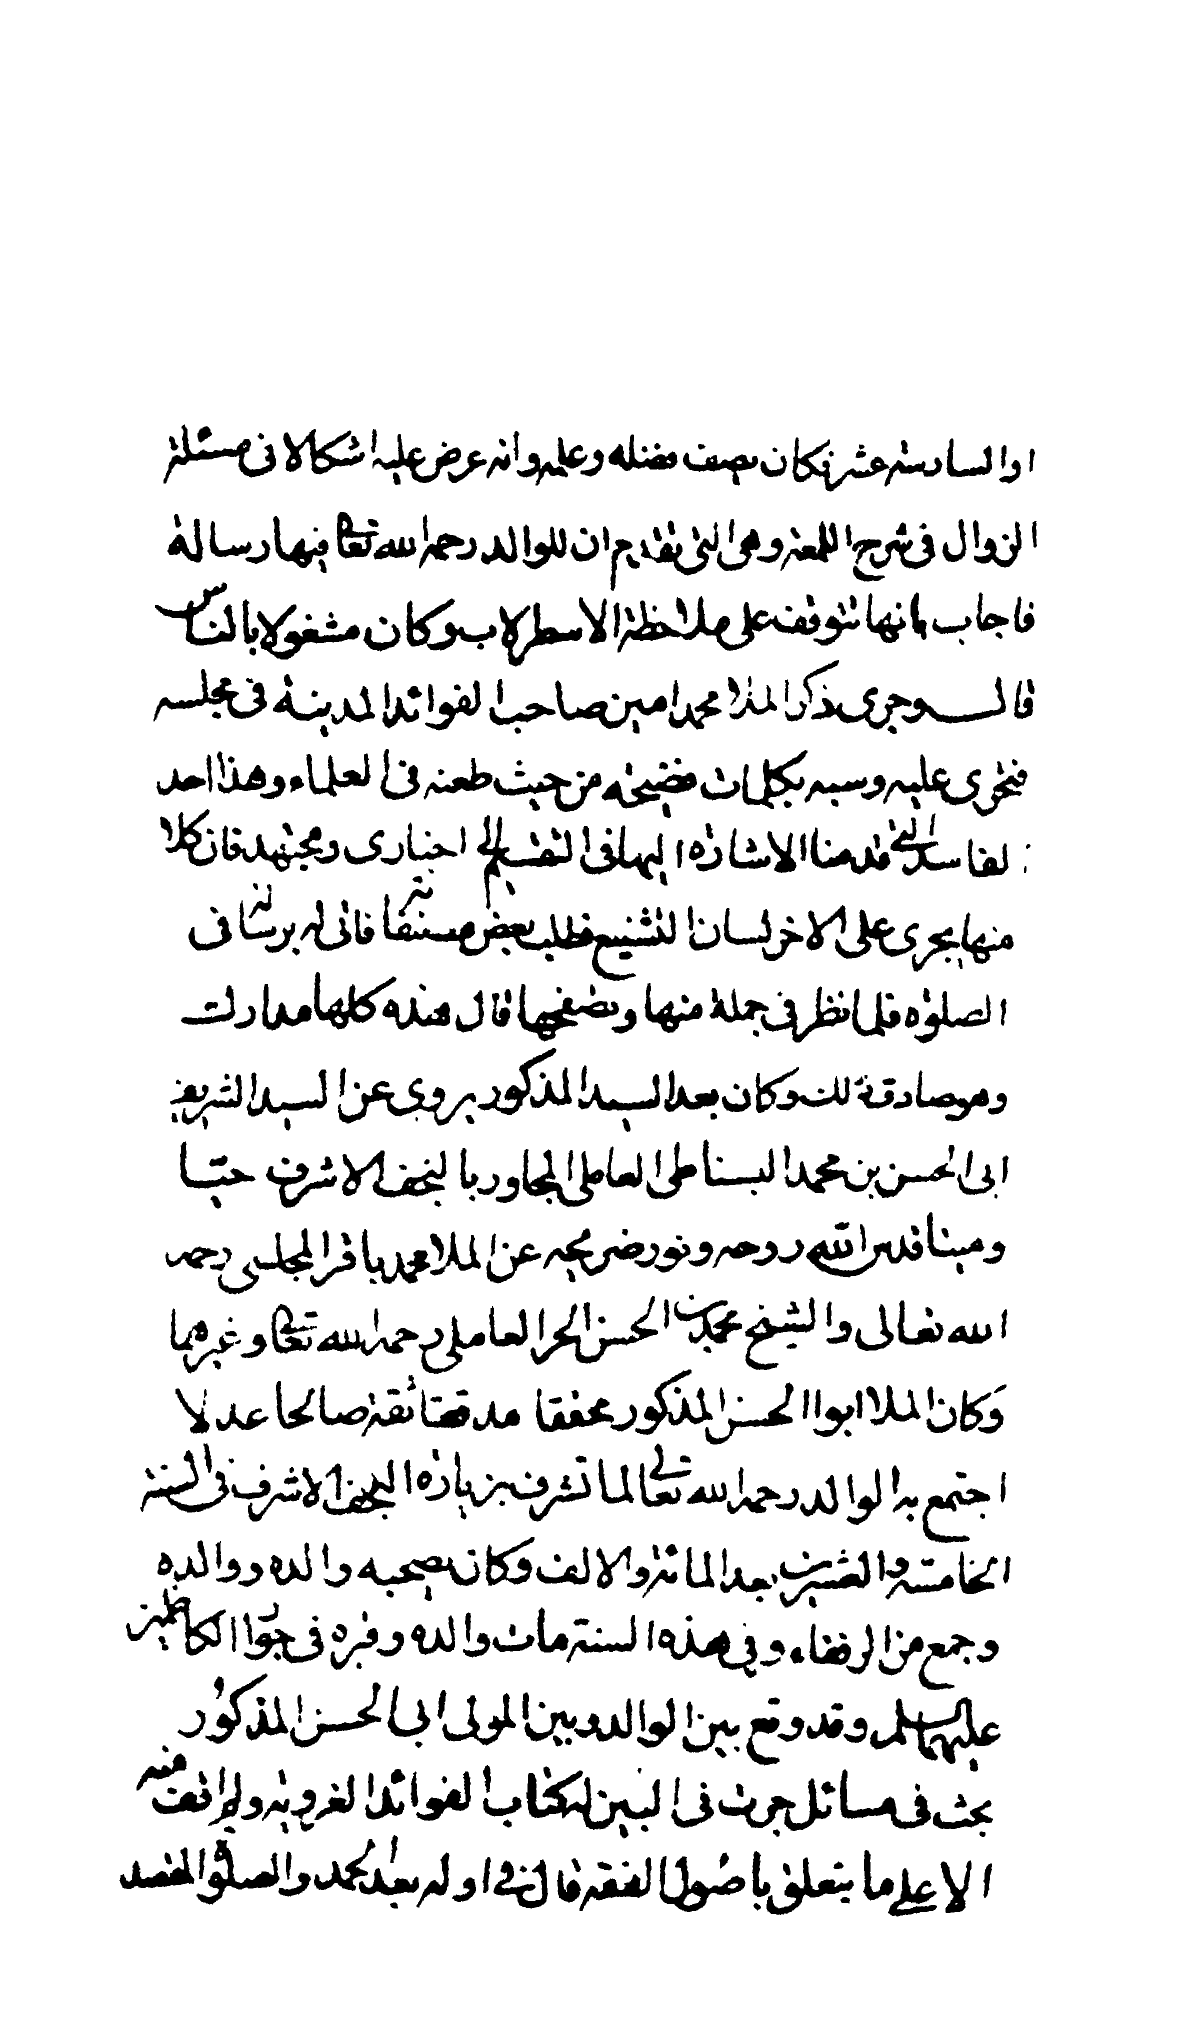 او السادسة عشر فكان يصف فضله وعلمه وانه عرض عليه اشكالا فى مسئلة
الزوال فى شرح اللمعه وهى التى تقدم ان للوالد رحمه الله تعالى فيها رسالة
فاجاب بانها تتوقف على ملاحظة الاسطرلاب وكان مشغولا بالناس
قال وجرى ذكر الملا محمد امين صاحب الفوائد المدينة فى مجلسه
فتحرى عليه وسبه بكلمات فضيحه من حيث طعنه فى العلماء وهذا احد
المفاسد التى قدمنا الاشارة اليها فى التقسيم الى اخبارى ومجتهد فان كلا
منها يجرى على الاخر لسان التشنيع فطلب بعض مصنفاته فاتى له برسالة فى
الصلوة فلما نظر فى جملة منها وتصفحها قال هذه كلها مدارك
وهو صادق فى ذلك وكان بعد السيد المذكور يروى عن السيد الشريف
ابى الحسن بن محمد البناطى العاملى المجاور بالنجف الاشرف حيّا
وميتا قدس الله روحه ونور ضريحه عن الملا محمد باقر المجلسى رحمه
الله تعالى والشيخ محمد بن الحسن الحر العاملى رحمه الله تعالى وغيرهما
وكان الملا ابوا الحسن المذكور محققا مدققا ثقة صالحا عدلا
اجتمع به الوالد رحمه الله تعالى لما تشرف بزيارة النجف الاشرف فى السنة
الخامسة والعشرين بعد المائة والالف وكان بصحبه والده ووالدته
وجمع من الرفقاء وفى هذه السنة مات والده وقبره فى جوار الكاظمين
عليهما السلم وقد وقع بين الوالد وبين المولى ابى الحسن المذكور
بحث فى مسائل جرت فى البين له كتاب الفوائد الغرويه ولم اقف منه
الا على ما يتعلق باصول الفقه قال فى اوله بعد الحمد والصلوة المقصد